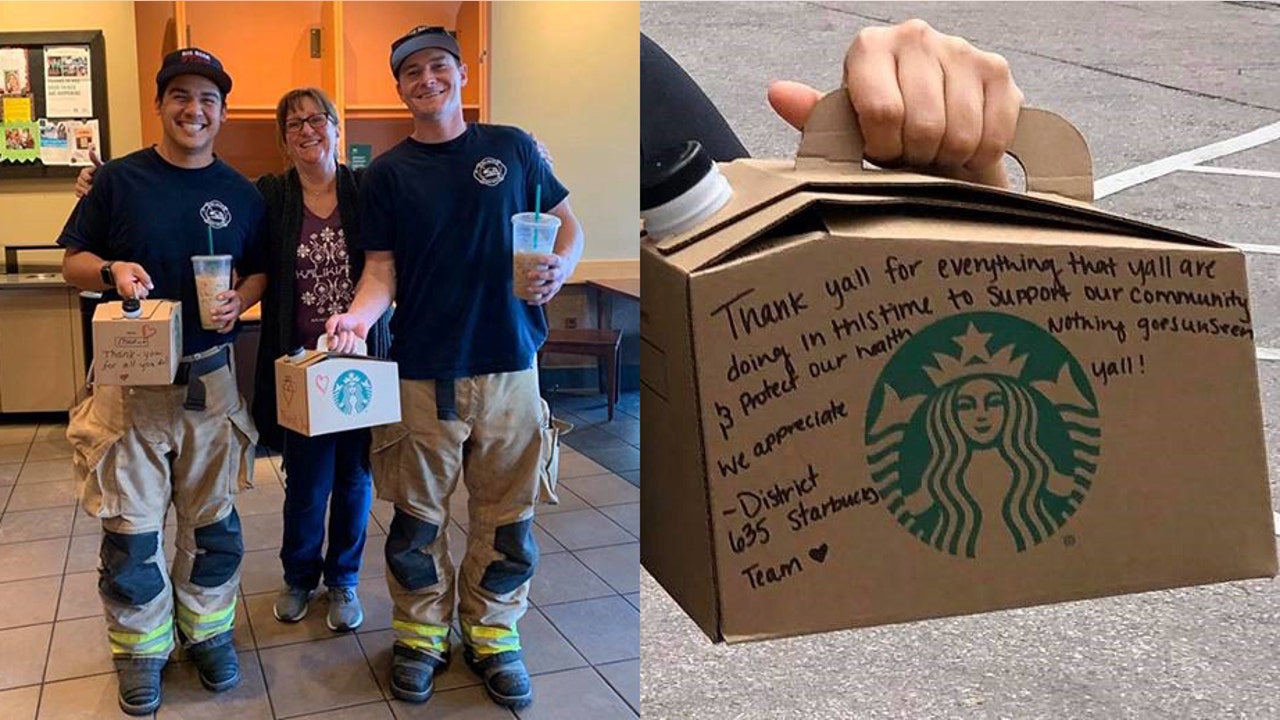 Thank-you
for all you do!
Thank yall for everything that yall are
doing in this time to support our community
& Protect our health Nothing goes unseen
we appreciate yall!
-District
635 Starbucks
Team ♥